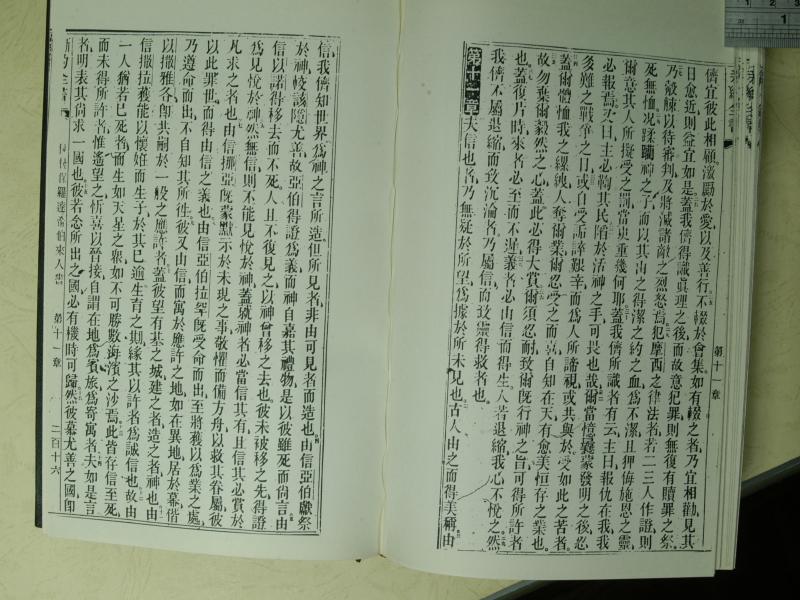 儕宜彼此相顧激勵於愛以及善行不輟於會集如有輟之者乃宜相勸見其
日愈近則益宜如是蓋我儕得識眞理之後而故意犯罪則無復有贖罪之祭
乃觳觫以待審判及將滅諸敵之烈怒焉犯摩西之律法者若二三人作證則
死無恤况蹂躪神之子而以其由之得潔之約之血爲不潔且押侮施恩之靈
爾意其人所擬受之罰當更重幾何耶蓋我儕所識者有云主曰報仇在我我
必報焉又曰主必鞫其民陷於活神之手可畏也哉爾當憶曩蒙發明之後忍
多難之戰爭之日或自受詬誶艱辛而爲人所諦視或共與於受如此之苦者
蓋爾體恤我之縲絏人奪爾業爾忍受之而喜自知在天有愈美恒存之業也
故勿棄爾毅然之心蓋此必得大賞爾須忍耐致爾旣行神之旨可得所許者
也蓋復片時來者必至而不遲義者必由信而得生人若退縮我心不悅之然
我儕不屬退縮而致沉淪者乃屬信而致靈得救者也
第十一章 夫信也者乃無疑於所望爲據於所未見也古人由之而得美稱由
第十一章
信我儕知世界爲神之言所造但所見者非由可見者而造也由信亞伯獻祭
於神較該隱尤善故亞伯得證爲義而神自嘉其禮物是以彼雖死而尙言由
信以諾得移去而不死人且不復見之以神曾移之去也彼未被移之先得證
爲見悅於神然無信則不能見悅於神蓋就神者必當信其有且信其必賞於
凡求之者也由信挪亞旣蒙默示於未現之事敬懼而備方舟以救其眷屬彼
以此罪世而得由信之義也由信亞伯拉罕旣受命而出至將獲以爲業之處
乃遵命而出不自知其所往彼又由信而寓於應許之地如在異地居於幕偕
以撒雅各卽共嗣於一般之應許者蓋彼望有基之城建之者造之者神也由
信撒拉獲能以懷姙而生子於其已逾生育之期緣其以許者爲誠信也故由
一人猶若已死者而生如天星之衆如不可勝數海濱之沙焉此皆存信至死
而未得所許者惟遙望之忻喜以晉接自謂在地爲賓旅爲寄寓者夫如是言
者明表其尙求一國也彼若念所出之國必有機時可歸然彼慕尤善之國卽
新約全書 使徒保羅達希伯來人書 第十一章 二百十六